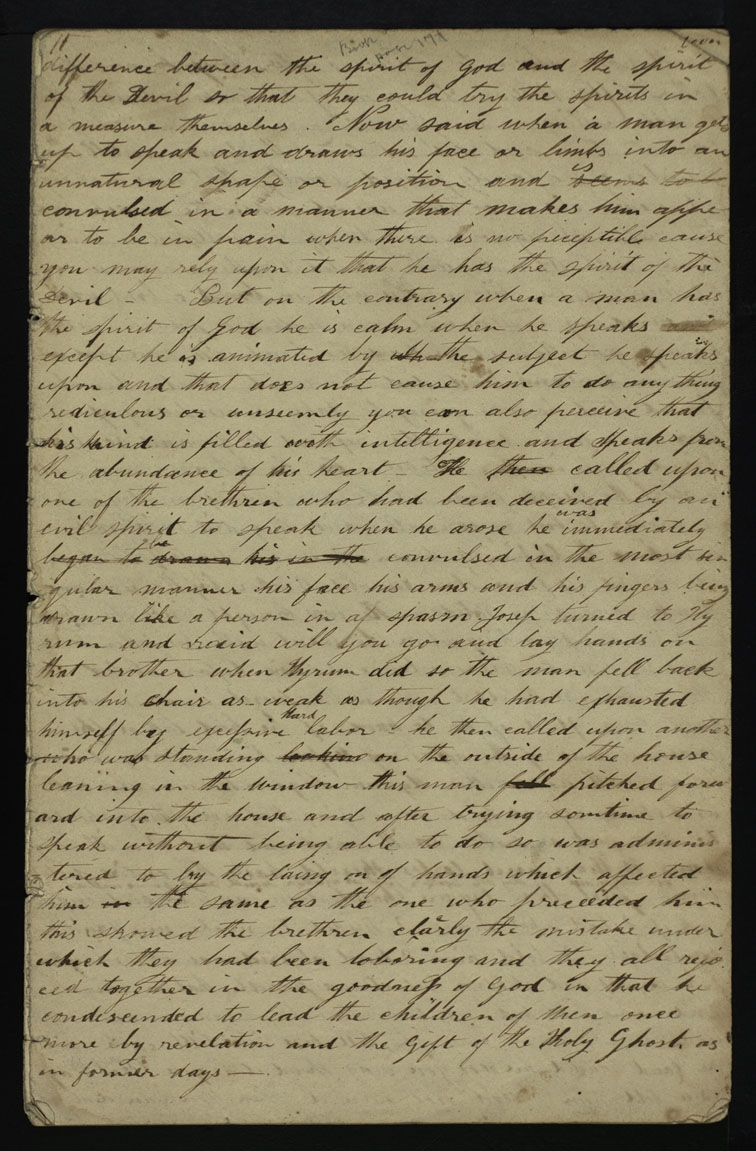 11
Book
page 171
difference between the spirit of god and the spirit
of the Devil so that they could try the spirits in
a measure themselves. Now said when a man gets
up to speak and draws his face or limbs into an
unnatural shape or position and is seems to be
convulsed in a manner that makes him appe
ar to be in pain when there is no peceptible cause
you may rely upon it that he has the spirit of the
Devil - But on the contrary when a man has
the spirit of God he is calm when he speaks
except he is animated by wh the subject he speaks
upon and that does not cause him to do any thing
rediculous or unseemly you can also perceive that
his mind is filled with intelligence and speaks from
the abundance of his heart - He then called upon
one of the brethren who had been deceived by an
evil spirit to speak when he arose he was immediately
began to be drawn his in the convulsed in the most sin
gular manner his face his arms and his fingers being
drawn like a person in a spasm Josep turned to Hy
rum and said will you go and lay hands on
that brother when Hyrum did so the man fell back
into his chair as weak as though he had exhausted
himself by excessive hard labor he then called upon another
who was standing looking on the outside of the house
leaning in the window this man fell pitched forw
ard into the house and after trying somtime to
speak without being able to do so was adminis
tered to by the laing on of hands which affected
him in the same as the one who preceeded him
this showed the brethren clarly the mistake under
which they had been laboring and they all rejoi
ced together in the goodness of God in that he
condescended to lead the children of men once
more by revelation and the Gift of the Holy Ghost as
in former days —